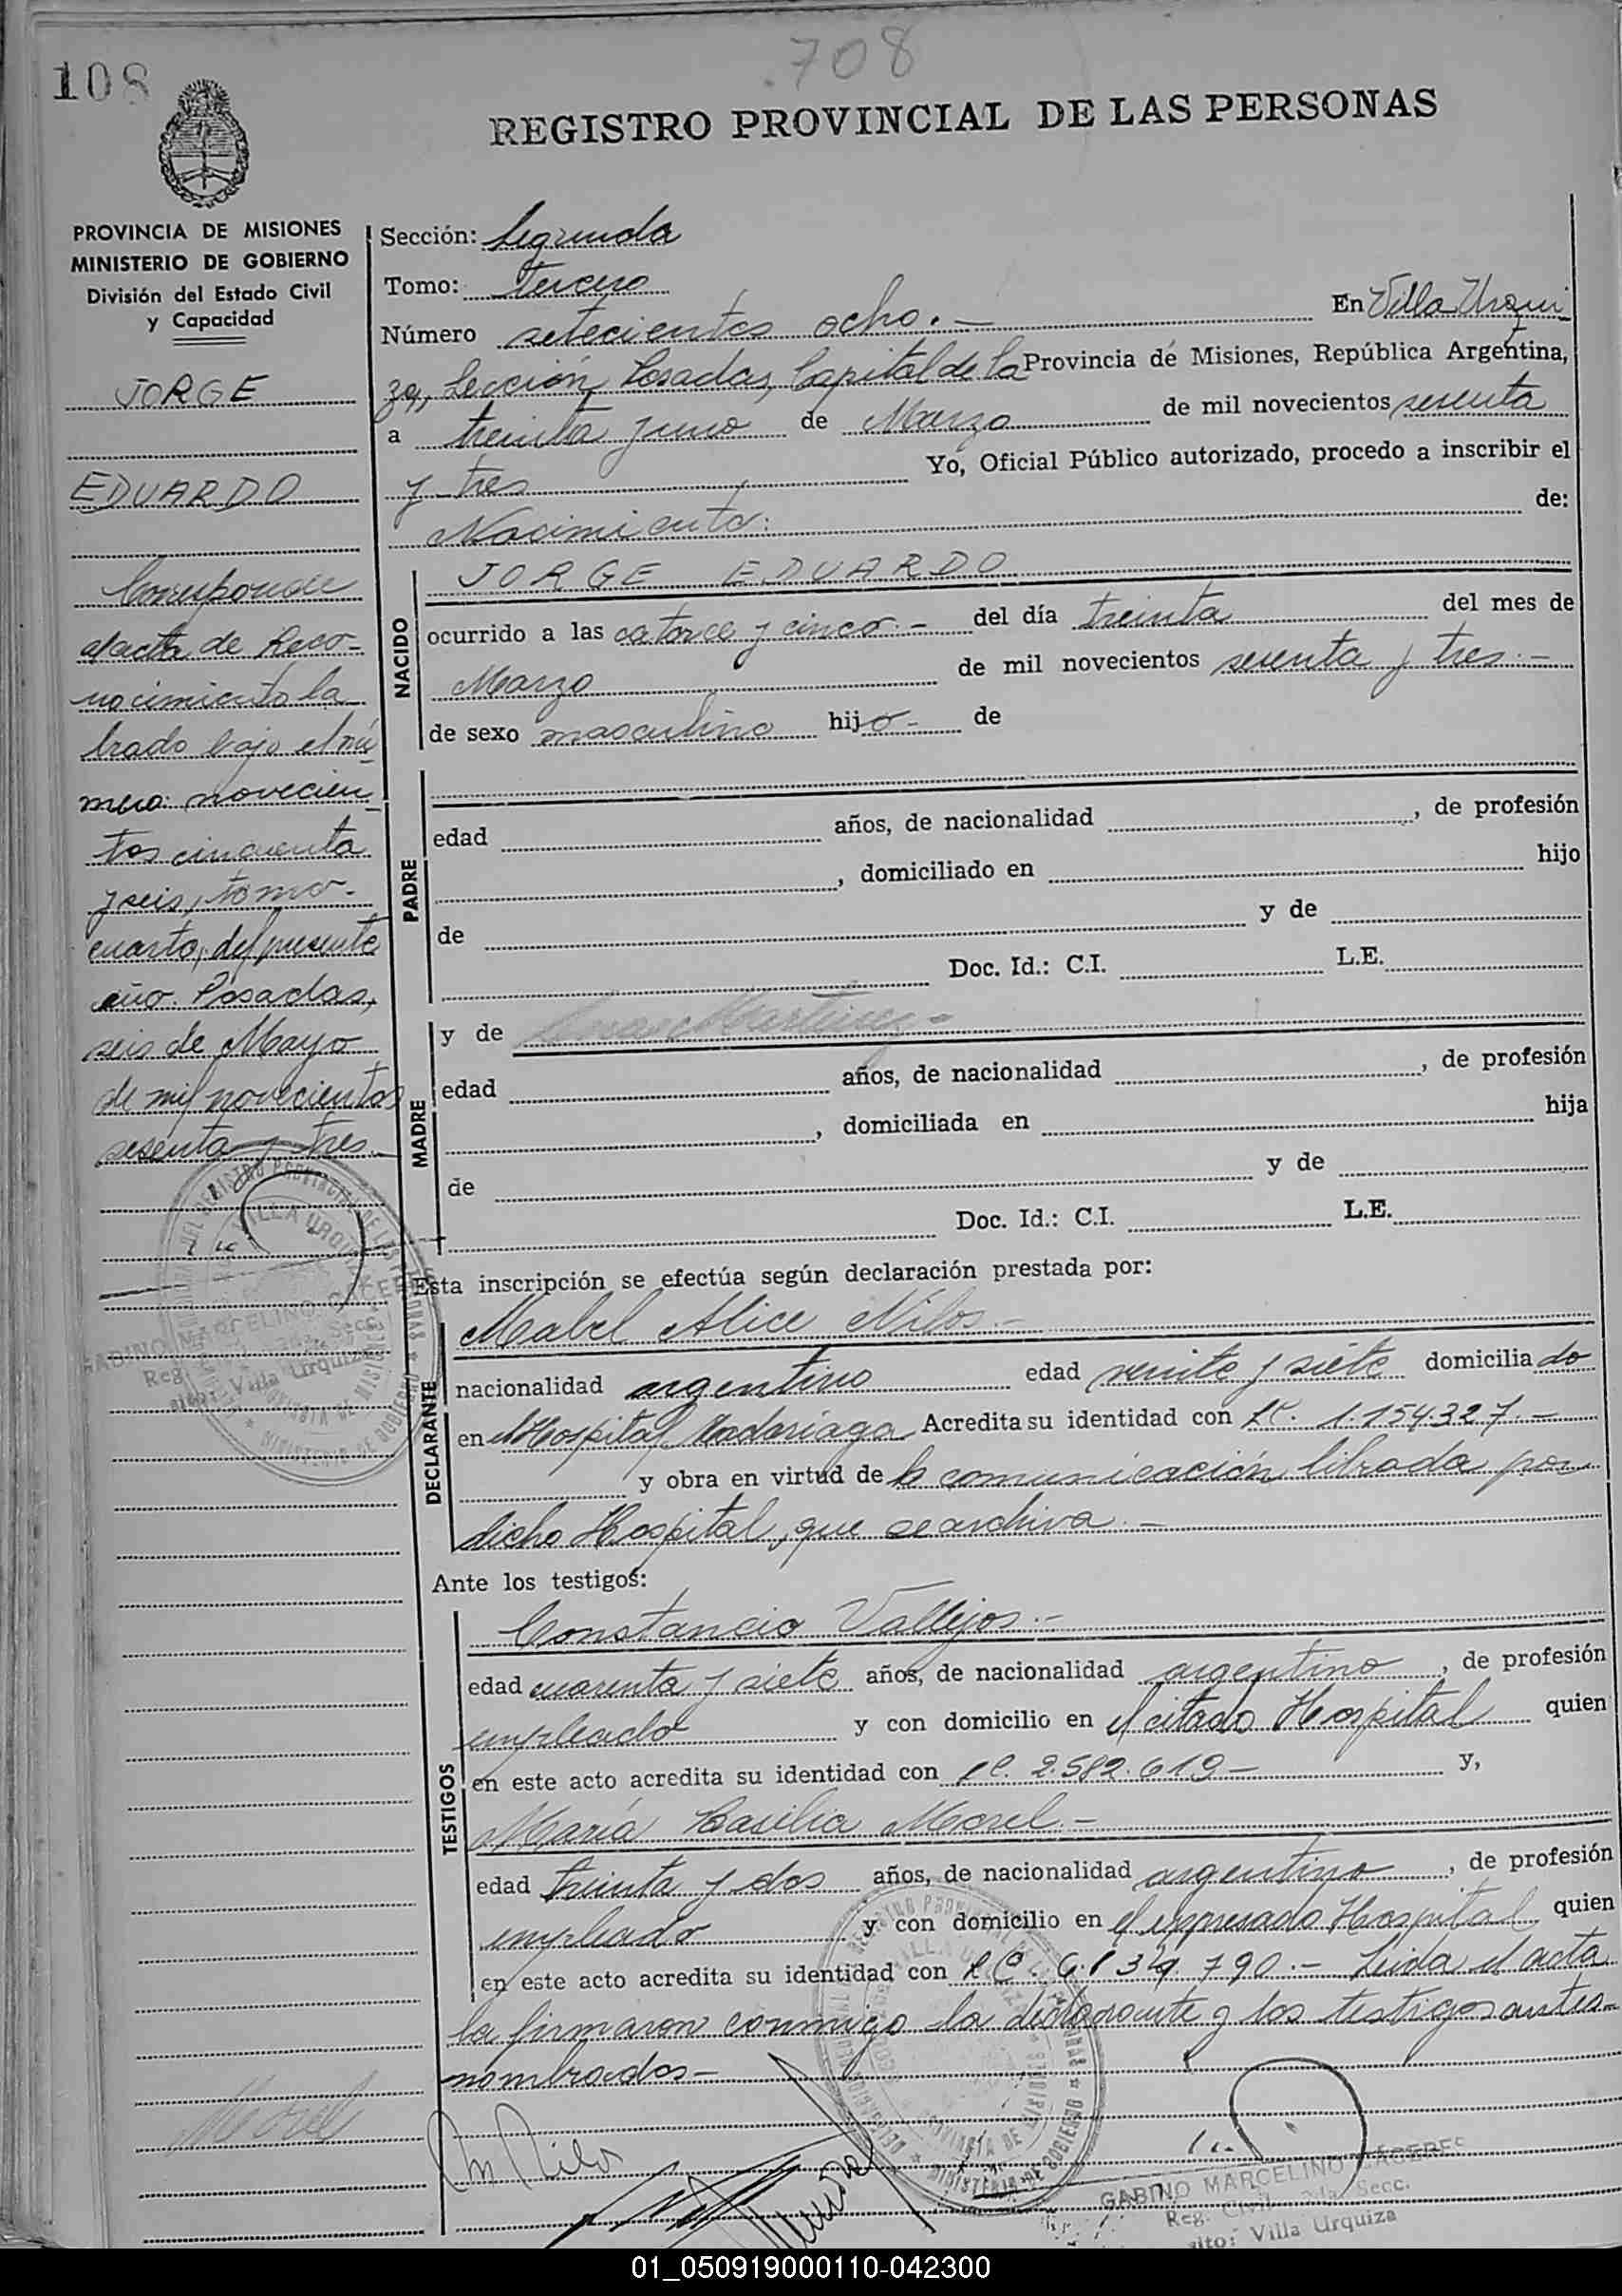 108
708
REGISTRO PROVINCIAL DE LAS PERSONAS
PROVINCIA DE MISIONES
MINISTERIO DE GOBIERNO
División del Estado Civil
y Capacidad
JORGE
EDUARDO
Corresponde
al acta de Reco-
nocimiento la
brado bajo el nú
mero: novecien
tos cincuenta
y seis, tomo
cuarto, del presente
año. Posadas,
seis de Mayo
de mil novecientos
sesenta y tres.-
Sección: Segunda
Tomo: Tercero
Número setecientos ocho.- En Villa Urqui
za, Sección Posadas, Capital de la Provincia de Misiones, República Argentina,
a treinta y uno de Marzo de mil novecientos sesenta
y tres Yo, Oficial Público autorizado, procedo a inscribir el
Nacimiento: de:
NACIDO
JORGE EDUARDO
ocurrido a las catorce y cinco.- del día treinta del mes de
Marzo de mil novecientos sesenta y tres.-
de sexo masculino hijo- de
PADRE
edad años, de nacionalidad , de profesión
, domiciliado en hijo
de y de
Doc. Id.: C.I. L.E.
MADRE
y de Martinez-
edad años, de nacionalidad , de profesión
, domiciliada en hija
de y de
Doc. Id.: C.I. L.E.
Esta inscripción se efectúa según declaración prestada por:
DECLARANTE
Mabel Alice Nilos.-
nacionalidad argentino edad veinte y siete domiciliado
en Hospital Madariaga Acredita su identidad con LC. 1.154.327.-
y obra en virtud de la comunicación librada por
dicho Hospital, que se archiva.-
Ante los testigos:
TESTIGOS
Constancio Vallejos.-
edad cuarenta y siete años, de nacionalidad argentino, de profesión
empleado y con domicilio en el citado Hospital quien
en este acto acredita su identidad con 2.582.619- y,
María Basilia Morel-
edad treinta y dos años, de nacionalidad argentino, de profesión
empleado y con domicilio en el expresado Hospital quien
en este acto acredita su identidad con LC. 790.- Leida el acta
la firmaron conmigo la declarante y los testigos antes
nombrados-
Morel
M Nilos
GABINO MARCELINO CACERES
Reg. Civil Secc.
Villa Urquiza
GABINO MARCELINO CACERES
Reg. Civil Secc.
Villa Urquiza
01_050919000110-042300